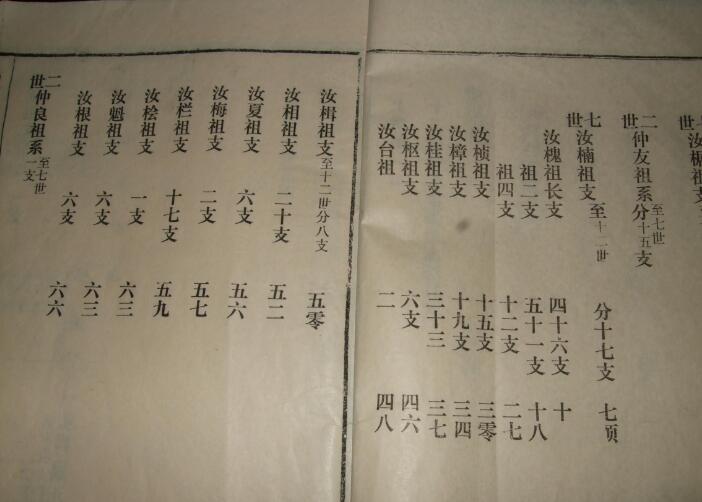 二世仲友祖系至七世分十五支
七世汝楠祖支至十二世 分十七支 七页
汝槐祖长支 四十六支 十
祖二支 五十一支 十八
祖四支 十二支 二七
汝桢祖支 十五支 三零
汝樟祖支 十九支 三四
汝桂祖支 三十三 三七
汝枢祖支 六支 四六
汝台祖 二 四八
汝楫祖支至十二世分八支 五零
汝相祖支 二十支 五二
汝夏祖支 六支 五六
汝梅祖支 二支 五七
汝栏祖支 十七支 五九
汝桧祖支 一支 六三
汝魁祖支 六支 六三
汝根祖支 六支 六六
二世仲良祖系至七世一支